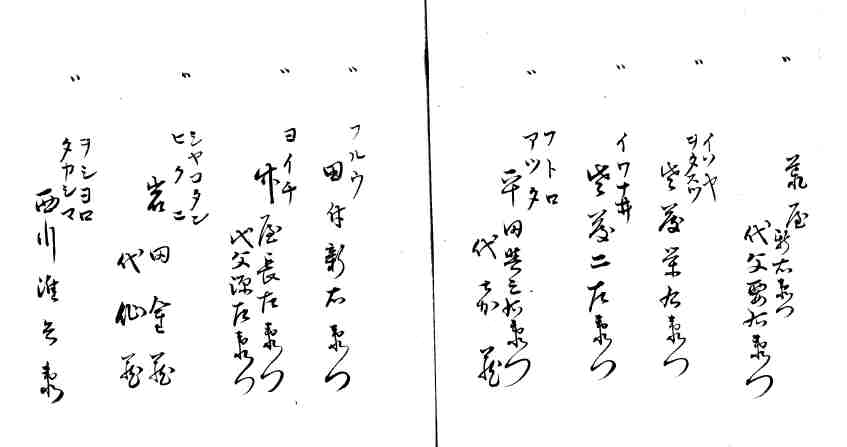 〃
荒屋新右衛門
代父要右衛門
〃
イソヤ
ヲタスツ
佐藤栄右衛門
〃
イワナ井
佐藤二左衛門
〃
フトロ
アツタ
平田与三右衛門
代 嘉蔵
〃
フルウ
田付新右衛門
〃
ヨイチ
竹屋長左衛門
代父源左衛門
〃
シヤコタン
ヒクニ
岩田金蔵
代仙蔵
〃
ヲシヨロ
タカシマ
西川准兵衛